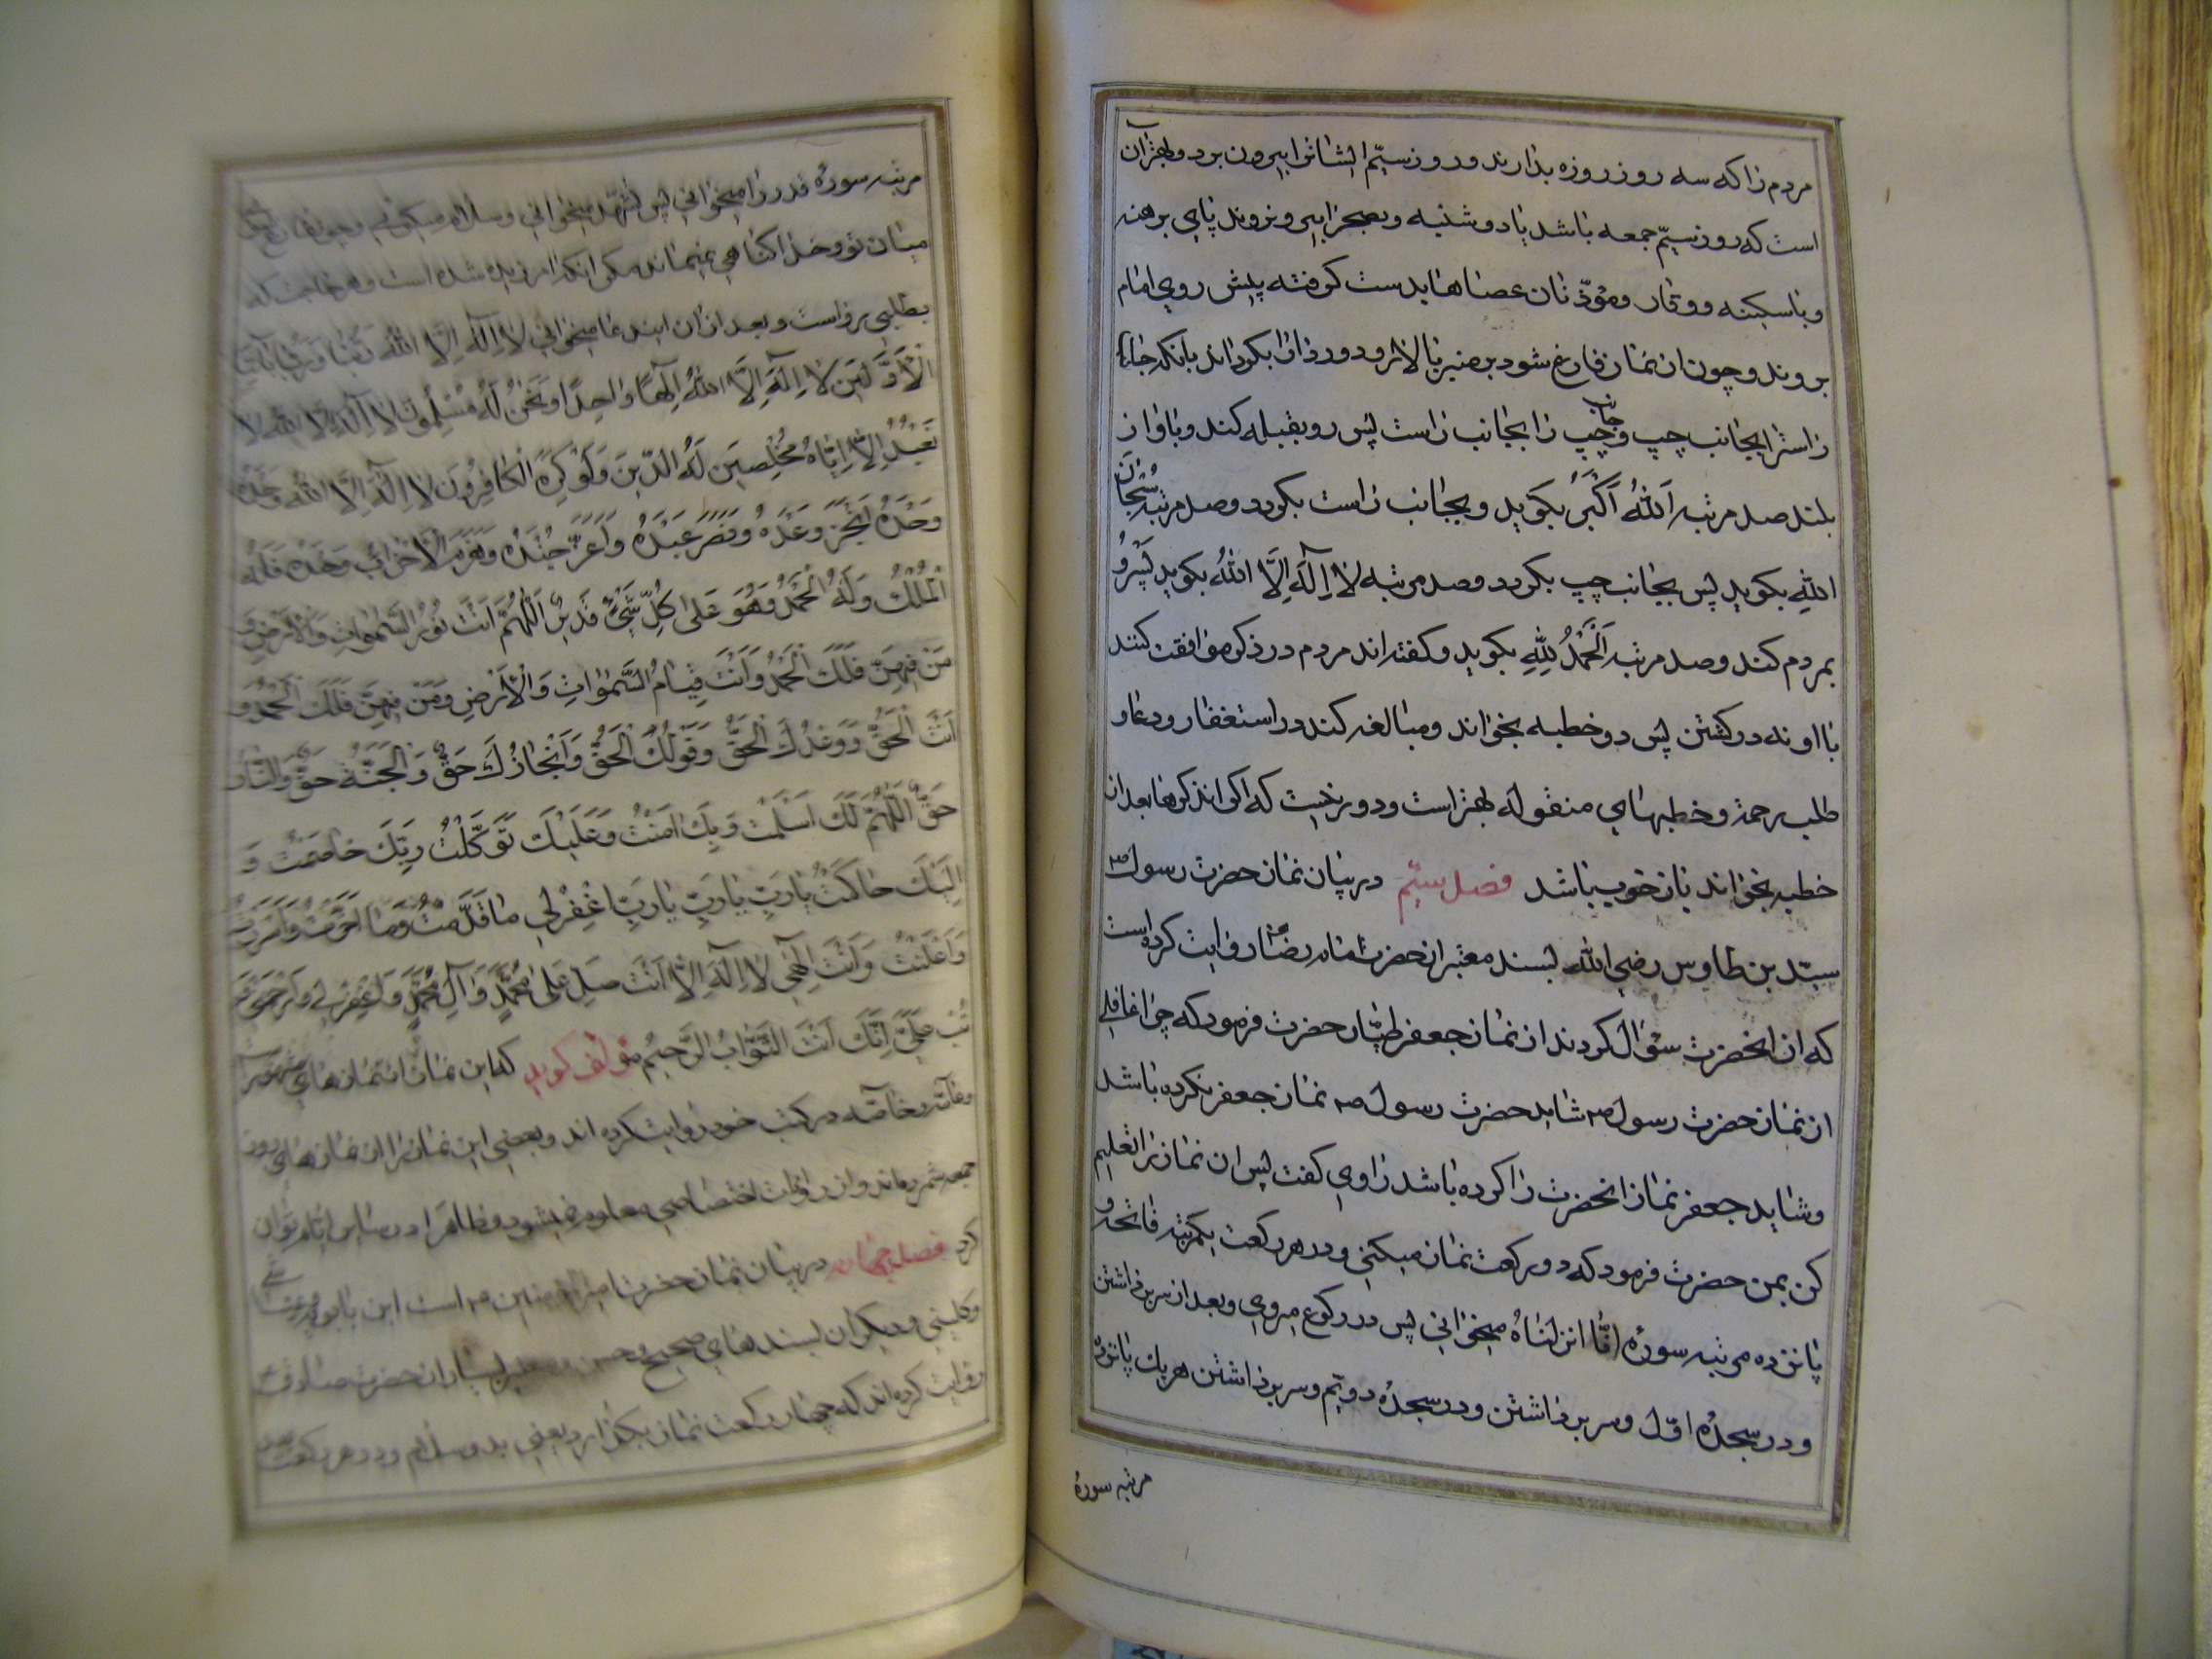 مردم را که سه روز روزه بدارند و روز سیّم ایشانرا بیرون برد و بهتر آن
است که روز سیّم جمعه باشد یا دوشنبه و بصحرا بیرون روند پای برهنه
و با سکینه و وقار و مؤذّنان عصاها بدست گرفته پیش روی امام
بروند و چون از نماز فارغ شود بر منبر بالا رود و ردا را بگرداند بانکه جانب
راسترا بجانب چپ و جانب چپ را بجانب راست پس رو بقبله کند و باواز
بلند صد مرتبه اَللهُ اَکْبَرُ بکوید و بجانب راست بکردد و صد مرتبه سُبْحانَ
اللهِ بکوید پس بجانب چپ بکردد و صد مرتبه لا اِلٰهَ اِلَّا اللهُ بکوید پس رو
بمردم کند و صد مرتبه اَلْحَمْدُ لِلّٰهِ بکوید و کفته اند مردم در ذکر موافقت کنند
با او نه در کشتن پس دو خطبه بخواند و مبالغه کند در استغفار و دعا و
طلب رحمة و خطبهای منقوله بهتر است و دور نیست که اکر اند کرها بعد از
خطبه بخواند باز خوب باشد فصل سیّم در بیان نماز حضرت رسول ص
سیّد بن طاوس رضی الله بسند معتبر از حضرت امام رضا ع روایت کرده است
که از انحضرت سؤال کردند از نماز جعفر طیّار حضرت فرمود که چرا غافلی
از نماز حضرت رسول ص شاید حضرت رسول ص نماز جعفر نکرده باشد
و شاید جعفر نماز انحضرت را کرده باشد راوی کفت پس ان نماز را تعلیم
کن بمن حضرت فرمود که دو رکعت نماز میکنی و در هر رکعت یکمرتبه فاتحه و
پانزده مرتبه سورهٔ اِنّا انزلناهُ میخوانی پس در رکوع میروی و بعد از سر برداشتن
و در سجدهٔ اوّل و سر برداشتن و در سجدهٔ دویّم و سر برداشتن هر یك پانزده
مرتبه سورهٔ
مرتبه سورهٔ قدر را میخوانی پس تشهّد میخوانی و سلام میکوئی و چون فارغ
میان تو و خدا کناهی نمیماند مکر انکه امرزیده شده است و هر حاجت که
بطلبی رواست و بعد ازان ایندعا میخوانی لا اِلٰهَ اِلَّا اللهُ رَبُّنا وَرَبُّ آبائِنا
الْاَوَّلینَ لا اِلٰهَ اِلَّا اللهُ اِلٰهًا واحِدًا وَنَحْنُ لَهُ مُسْلِمُونَ لا اِلٰهَ اِلَّا اللهُ لا
نَعْبُدُ اِلَّا اِیّاهُ مُخْلِصینَ لَهُ الدّینَ وَلَوْ کَرِهَ الْکافِرُونَ لا اِلٰهَ اِلَّا اللهُ وَحْدَهُ
وَحْدَهُ اَنْجَزَ وَعْدَهُ وَنَصَرَ عَبْدَهُ وَاَعَزَّ جُنْدَهُ وَهَزَمَ الْاَحْزابَ وَحْدَهُ فَلَهُ
الْمُلْكُ وَلَهُ الْحَمْدُ وَهُوَ عَلٰی کُلِّ شَیْءٍ قَدیرٌ اَللّٰهُمَّ اَنْتَ نُورُ السَّمٰواتِ وَالْاَرْضِ وَ
مَنْ فیهِنَّ فَلَكَ الْحَمْدُ وَاَنْتَ قِیامُ السَّمٰواتِ وَالْاَرْضِ وَمَنْ فیهِنَّ فَلَكَ الْحَمْدُ وَ
اَنْتَ الْحَقُّ وَوَعْدُكَ الْحَقُّ وَقَوْلُكَ الْحَقُّ وَاِنْجازُكَ حَقٌّ وَالْجَنَّةُ حَقٌّ وَالنّارُ
حَقٌّ اَللّٰهُمَّ لَكَ اَسْلَمْتُ وَبِكَ امَنْتُ وَعَلَیْكَ تَوَکَّلْتُ وَبِكَ خاصَمْتُ وَ
اِلَیْكَ حاکَمْتُ یا رَبِّ یا رَبِّ یا رَبِّ اغْفِرْلی ما قَدَّمْتُ وَما اَخَّرْتُ وَاَسْرَرْتُ
وَاَعْلَنْتُ وَاَنْتَ اِلٰهی لا اِلٰهَ اِلَّا اَنْتَ صَلِّ عَلٰی مُحَمَّدٍ وَآلِ مُحَمَّدٍ وَاغْفِرْلی وَارْحَمْنی وَ
تُبْ عَلَیَّ اِنَّكَ اَنْتَ التَّوّابُ الرَّحیمُ مؤلف کوید که این نماز از نمازهای مشهور است
و عامّه و خاصّه در کتب خود روایت کرده اند و بعضی این نماز را از نمازهای روز
جمعه شمرده اند و از روایات اختصاصی معلوم نمیشود و ظاهرا در سایر ایّام توان
کرد فصل چهارم در بیان نماز حضرت امیرالمؤمنین ع است ابن بابویه و شیخ
و کلینی و دیکران بسندهای صحیح و حسن و معتبر بسیار از حضرت صادق ع
روایت کرده اند که چهار رکعت نماز بکزارد یعنی بدو سلام و در هر رکعت